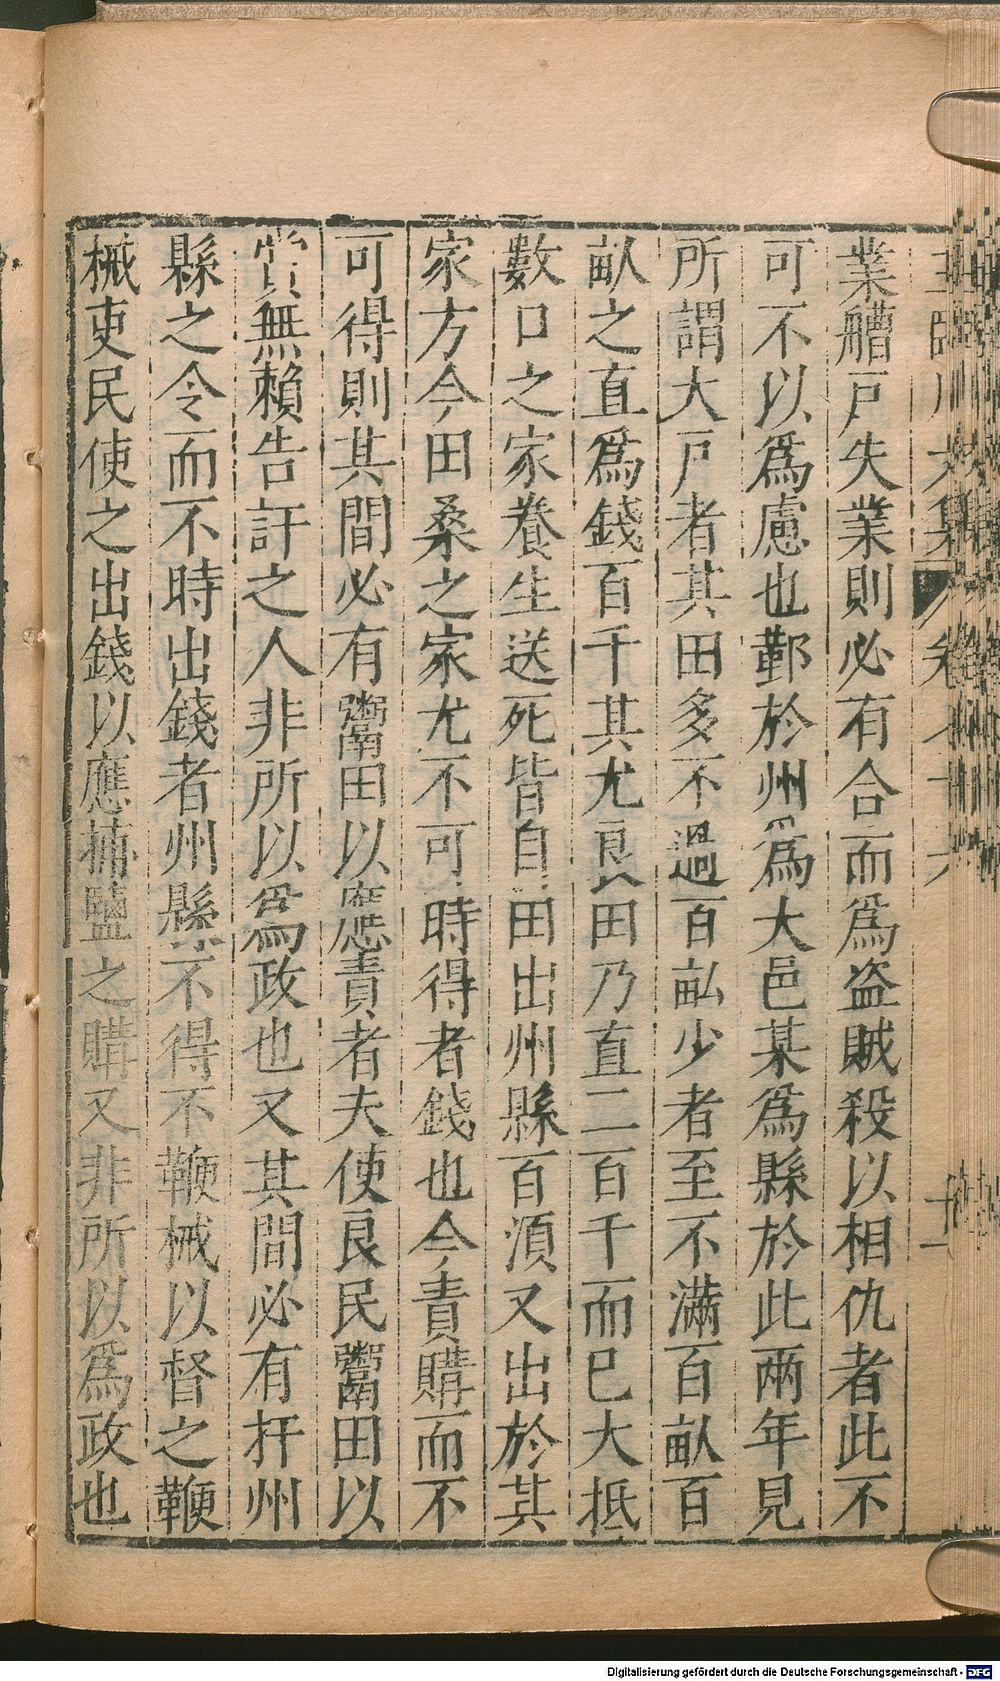 業艚戸失業則必有合而爲盗賊殺以相仇者此不
可不以爲慮也鄞於州爲大邑某爲縣於此兩年見
所謂大戸者其田多不過百畝少者至不滿百畝百
畝之直爲錢百千其尤良田乃直二百千而已大抵
數口之家養生送死皆自田出州縣百須又出於其
家方今田桑之家尤不可時得者錢也今責購而不
可得則其間必有鬻田以應責者夫使良民鬻田以
賞無賴告訐之人非所以爲政也又其間必有扞州
縣之令而不時出錢者州縣不得不鞭械以督之鞭
械吏民使之出錢以應捕鹽之購又非所以爲政也
Digitalisierung gefördert durch die Deutsche Forschungsgemeinschaft - DFG